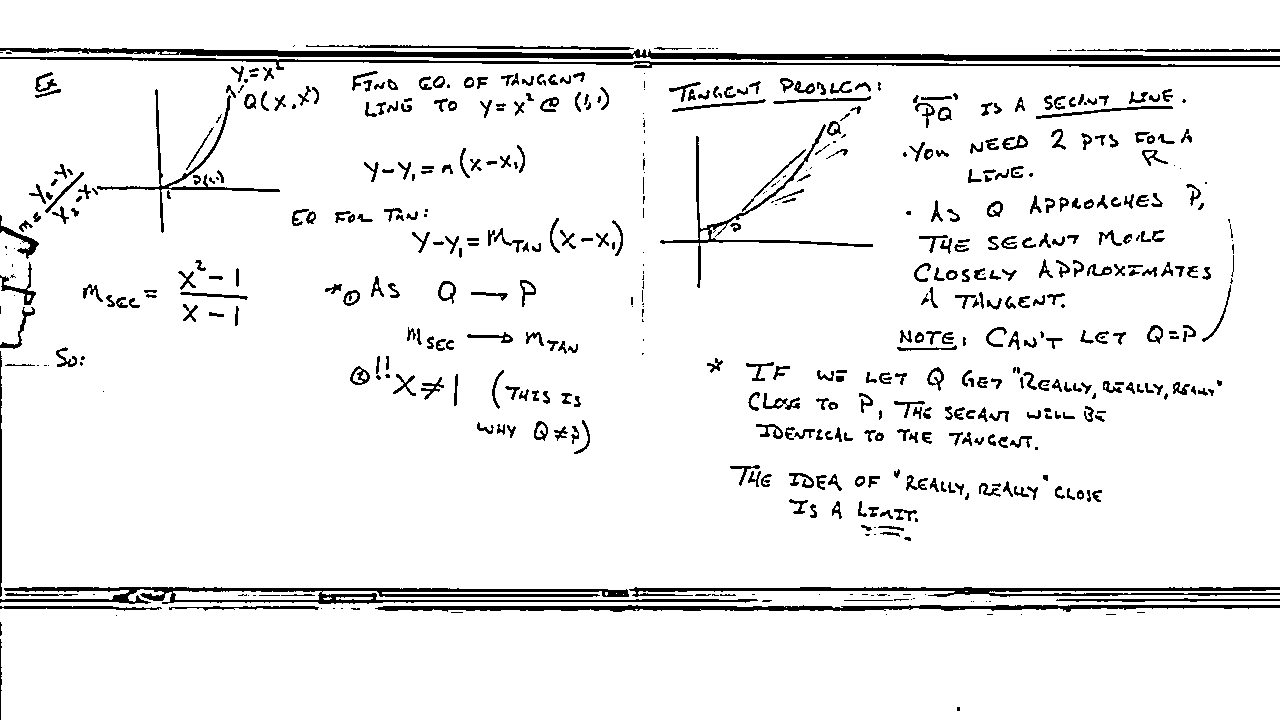 Ex
Y=X²
Q(X,X²)
P(1,1)
1
m = Y₂-Y₁ / X₂-X₁
m_SEC = X²-1 / X-1
SO:
FIND EQ. OF TANGENT
LINE TO Y=X² @ (1,1)
Y-Y₁=m(X-X₁)
EQ FOR TAN:
Y-Y₁=m_TAN(X-X₁)
*① AS Q → P
m_SEC → m_TAN
②!! X≠1 (THIS IS
WHY Q≠P)
TANGENT PROBLEM:
Q
P
"PQ" IS A SECANT LINE.
·YOU NEED 2 PTS FOR A
LINE.
· AS Q APPROACHES P,
THE SECANT MORE
CLOSELY APPROXIMATES
A TANGENT.
NOTE: CAN'T LET Q=P
* IF WE LET Q GET "REALLY, REALLY, REALLY"
CLOSE TO P, THE SECANT WILL BE
IDENTICAL TO THE TANGENT.
THE IDEA OF "REALLY, REALLY" CLOSE
IS A LIMIT.